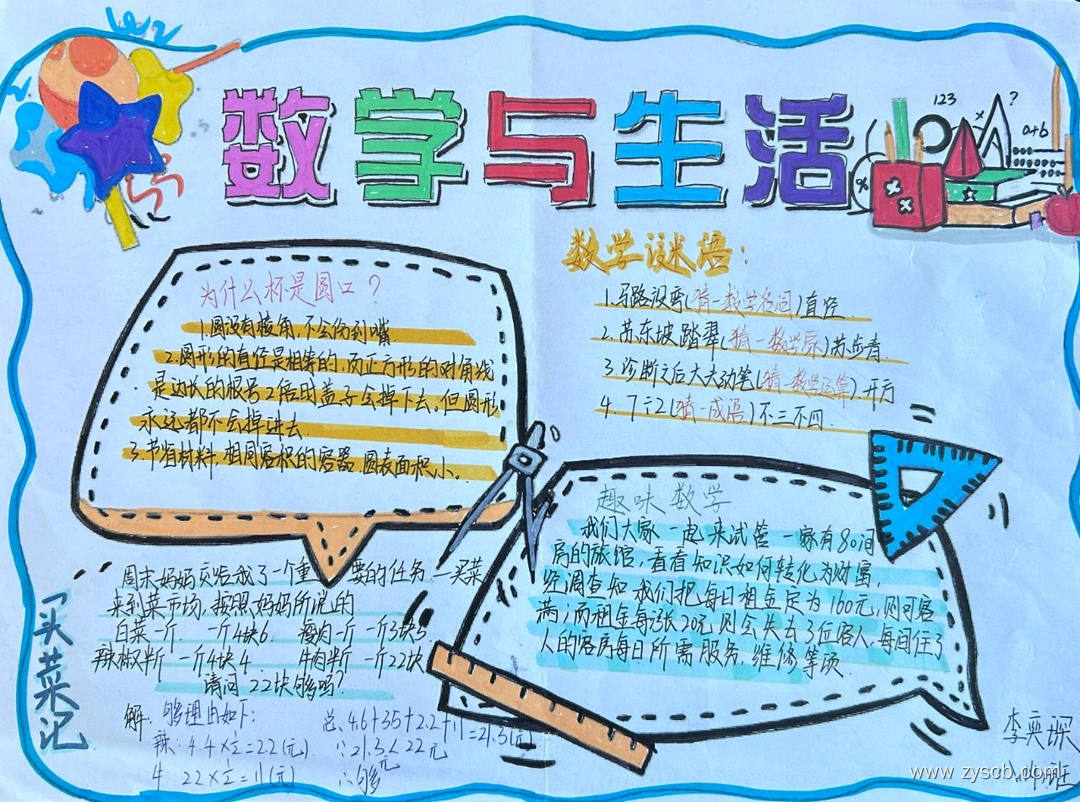 数学与生活
123
?
×
a+b
%
数学谜语:
1.马路没弯(猜一数学名词)直径
2.苏东坡踏翠(猜一数学家)苏步青
3.诊断之后大夫动笔(猜一数学运算).开方
4. 7÷2(猜一成语)不三不四.
为什么杯是圆口?
1.圆没有棱角,不会伤到嘴
2.圆形的直径是相等的,而正方形的对角线
是边长的根号2倍时盖子会掉下去,但圆形
永远都不会掉进去
3.节省材料,相同容积的容器.圆表面积小.
趣味数学
我们大家一起来试管一家有80间
房的旅馆,看看知识如何转化为财富,
经调查知我们把每日租金定为160元,则可客
满;而租金每涨20元则会失去3位客人,每间住了
人的客房每日所需服务.维修等项
买菜记
周末妈妈交给我了一个重要的任务—买菜
来到菜市场,按照妈妈所说的
白菜一斤 一斤4块6. 瘦肉一斤 一斤3块5
辣椒半斤 一斤4块4. 牛肉半斤 一斤22块
请问22块够吗?
解:够理由如下:
总:4.6+3.5+2.2+11=21.3(元)
辣:4.4×½=2.2(元)
∵21.3<22元
牛 22×½=11(元)
∴够
李奕琛
www.zyscb.com